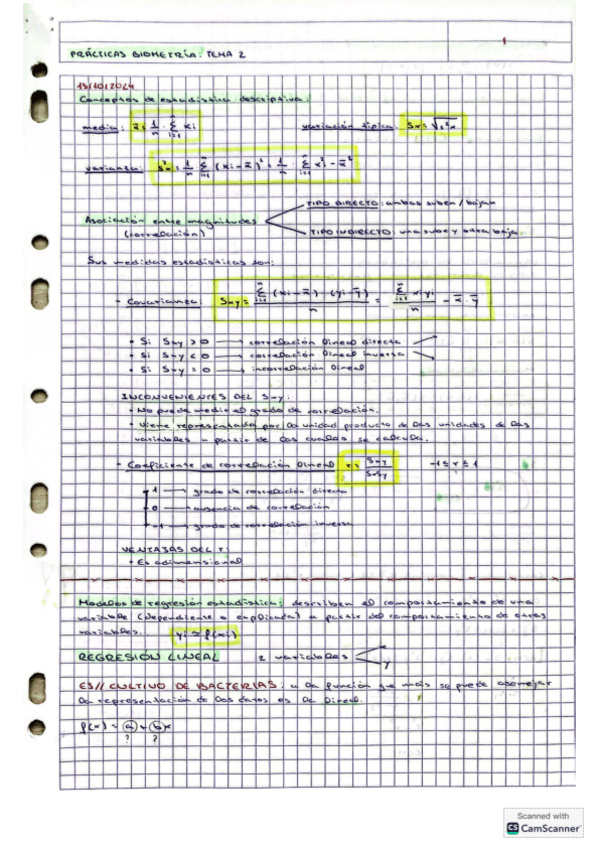 1
PRÁCTICAS BIOMETRÍA: TEMA 2
Conceptos de estadística descriptiva:
media: x̄ = 1/n · Σ(i=1→n) xi variación típica: Sx = √S²x
varianza: S²x = 1/n Σ(i=1→n) (xi - x̄)² = 1/n Σ(i=1→n) xi² - x̄²
TIPO DIRECTO: ambas suben / bajan
Asociación entre magnitudes
(correlación) TIPO INDIRECTO: una sube y otra baja
Sus medidas estadísticas son:
- Covarianza: Sxy = Σ(i=1→n) (xi - x̄) · (yi - ȳ) / n = Σ(i=1→n) xi yi / n - x̄ · ȳ
• Si Sxy > 0 → correlación lineal directa
• Si Sxy < 0 → correlación lineal inversa
• Si Sxy = 0 → incorrelación lineal
INCONVENIENTES DEL Sxy:
• No puede medir el grado de correlación.
• Viene representada por la unidad producto de las unidades de las
variables a partir de las cuales se calcula.
- Coeficiente de correlación lineal r = Sxy / SxSy -1 ≤ r ≤ 1
1 → grado de correlación directa
0 → ausencia de correlación
-1 → grado de correlación inversa
VENTAJAS DEL r:
• Es adimensional
Modelos de regresión estadística: describen el comportamiento de una
variable (dependiente o explicada) a partir del comportamiento de otras
variables. yi ≈ f(xi)
REGRESIÓN LINEAL 2 variables x y
EJ// CULTIVO DE BACTERIAS: la función que más se puede asemejar
la representación de los datos es la lineal.
f(x) = a + bx
? ?
Scanned with
CS CamScanner